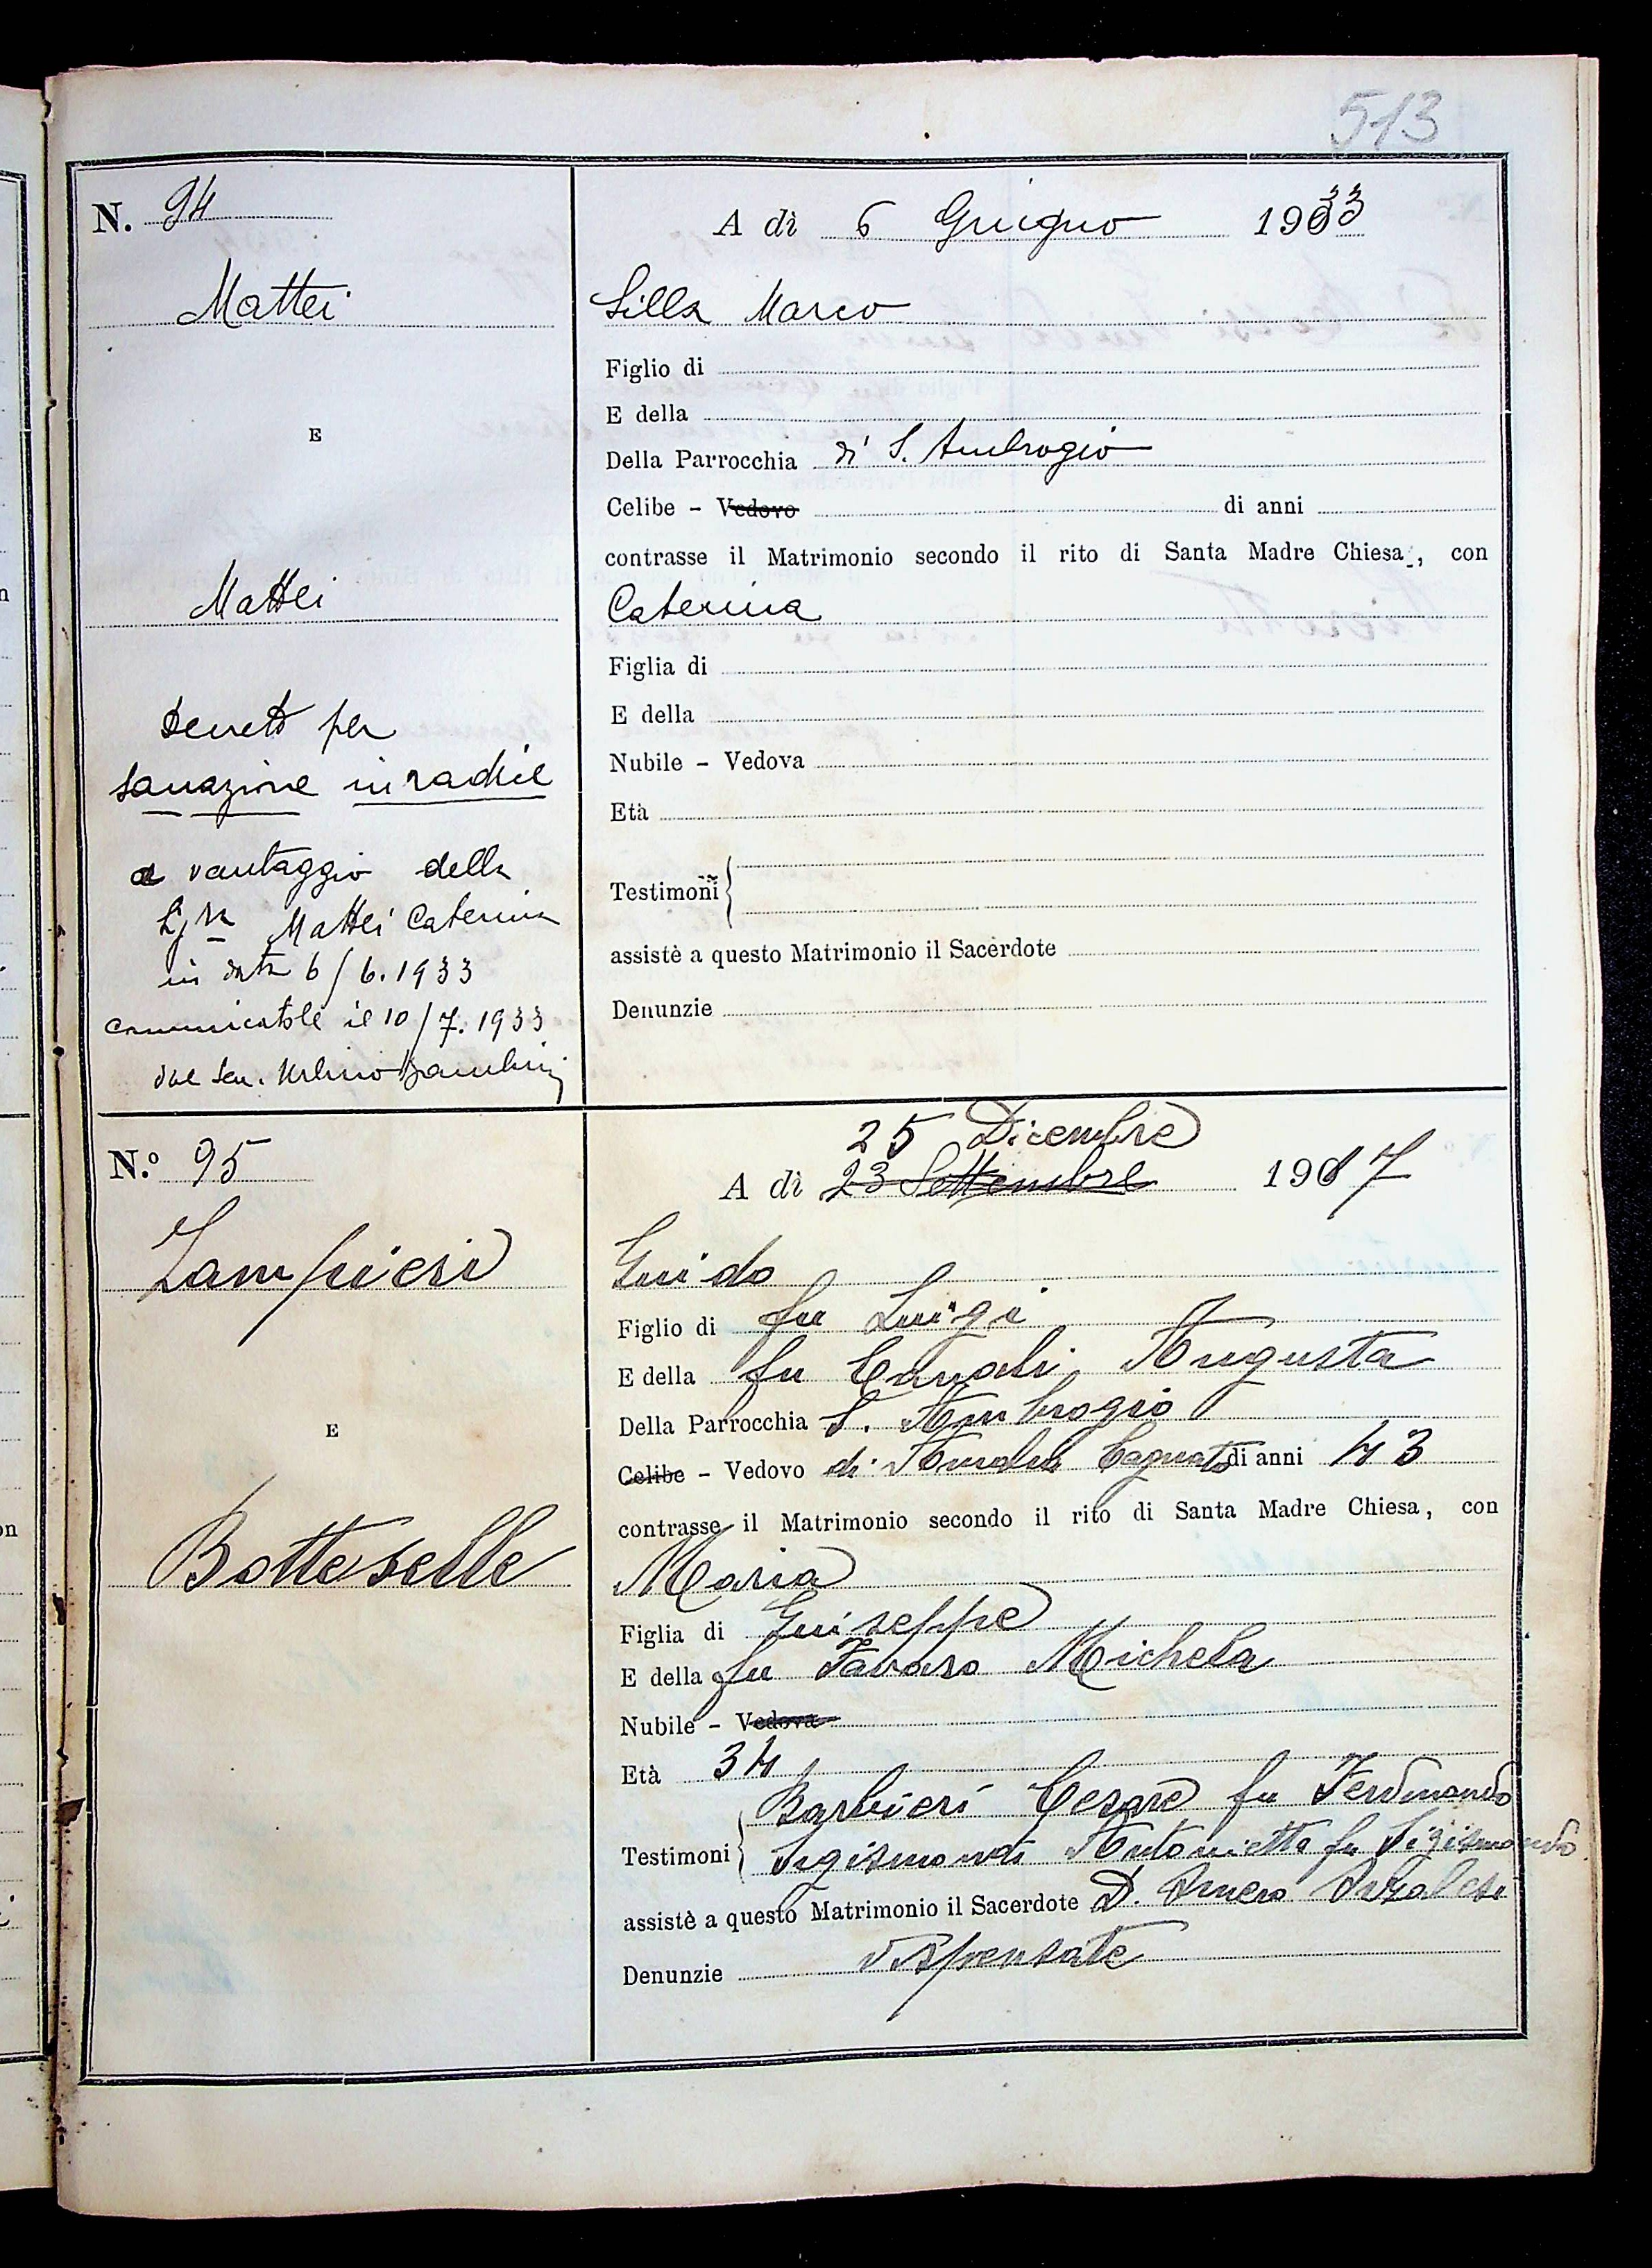 513
N. 94
A dì 6 Giugno 1933
Mattei
Silla Marco
Figlio di
E della
E
Della Parrocchia di S. Ambrogio
Celibe - Vedovo di anni
contrasse il Matrimonio secondo il rito di Santa Madre Chiesa, con
Mattei
Caterina
Figlia di
E della
Nubile - Vedova
Età
Testimoni
assistè a questo Matrimonio il Sacerdote
Denunzie
Decreto per
sanazione in radice
a vantaggio della
Sig.ra Mattei Caterina
in data 6/6.1933
comunicatole il 10/7.1933
dal Sen. Urbino
N.º 95
25 Dicembre
A dì 23 Settembre 1917
Zampieri
Guido
Figlio di fu Luigi
E della fu Augusta
E
Della Parrocchia S. Ambrogio
Celibe - Vedovo di Cagnato di anni 43
contrasse il Matrimonio secondo il rito di Santa Madre Chiesa, con
Botteselle
Maria
Figlia di Giuseppe
E della fu Favaro Michela
Nubile - Vedova
Età 34
Barbieri Cesare fu Ferdinando
Testimoni Sigismondi Antonietta fu Sigismondo
assistè a questo Matrimonio il Sacerdote D.
Denunzie dispensate